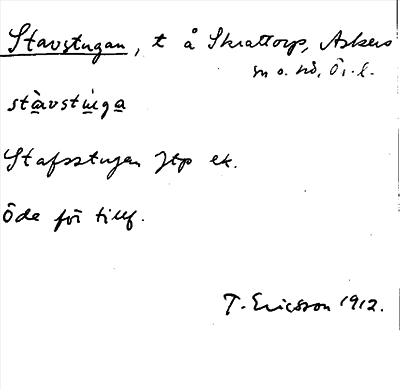 Stavstugan, t å Skrattorp, Askers
sn o. hd, Ör. l.
stàvstu̇ga
Stafsstugan Jtp ek.
Öde för tillf.
T. Ericsson 1912.